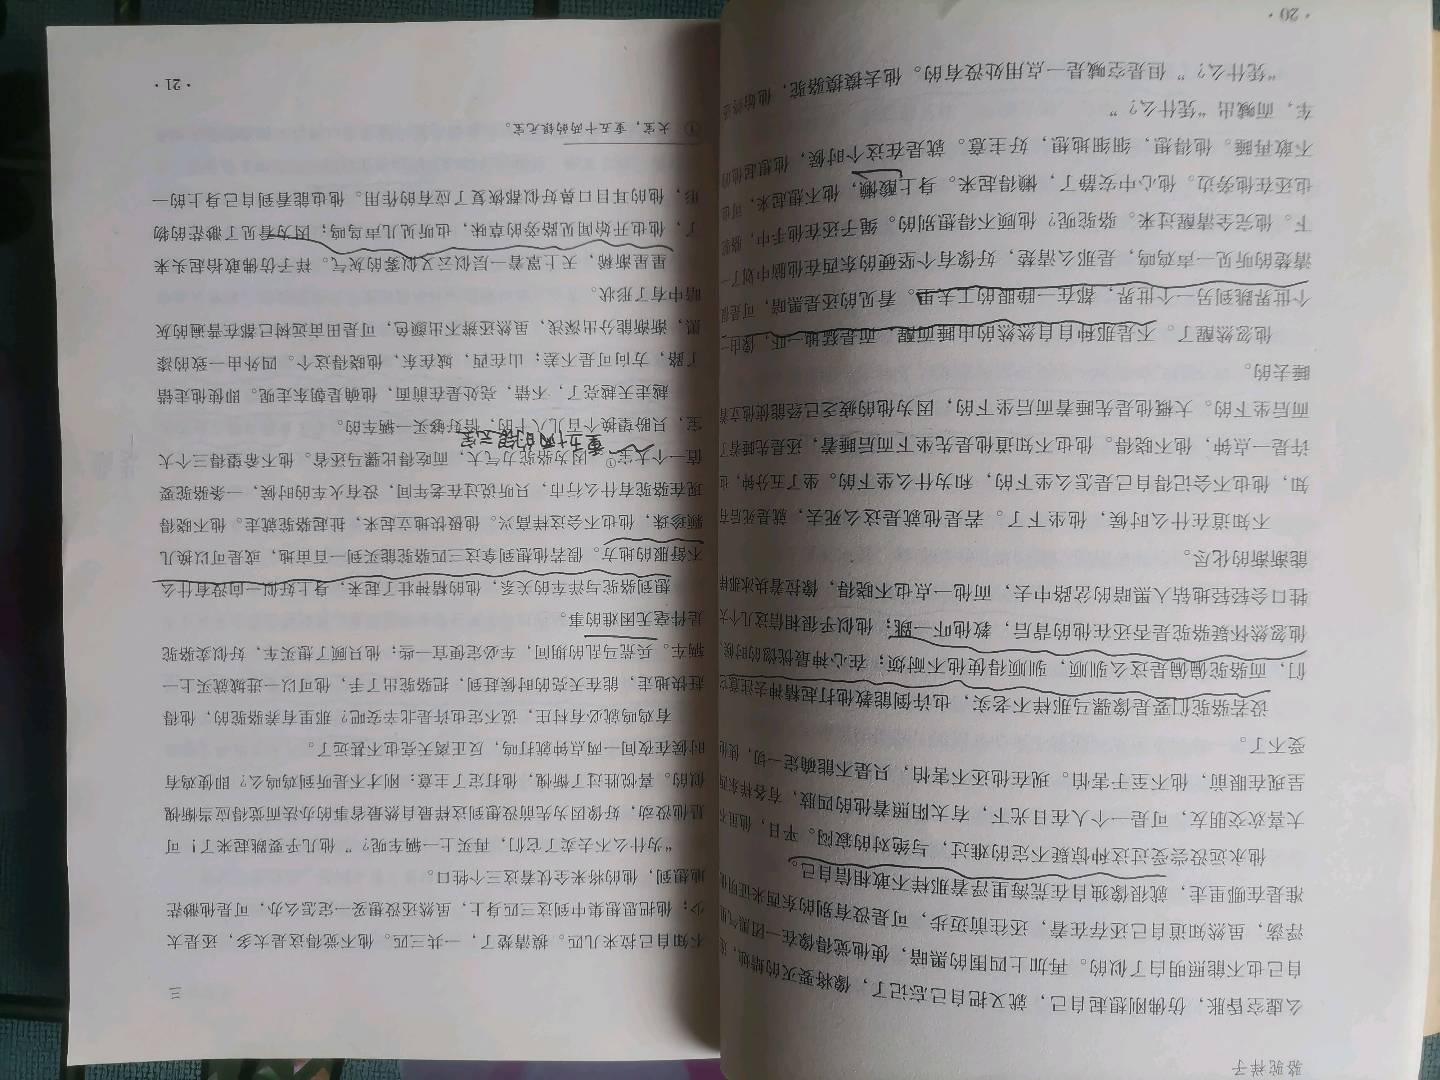 骆驼祥子
么虚空昏胀,仿佛刚想起自己,就又把自己忘记了,像将要灭的蜡烛,连
自己也不能照明白了似的。再加上四围的黑暗,使他觉得像在一团黑气里
浮荡,虽然知道自己还存在着,还往前迈步,可是没有别的东西来证明他
准是在哪里走,就很像独自在荒海里浮着那样不敢相信自己。
他永远没尝受过这种惊疑不定的难过,与绝对的寂闷。平日,他虽不
大喜欢交朋友,可是一个人在日光下,有太阳照着他的四肢,有各样东西
呈现在眼前,他不至于害怕。现在他还不害怕,只是不能确定一切,使他
受不了。
设若骆驼们要是像骡马那样不老实,也许倒能教他打起精神去注意它
们,而骆驼偏偏是这么驯顺,驯顺得使他不耐烦;在心神最恍惚的时候,
他忽然怀疑骆驼是否还在他的背后,教他吓一跳;他似乎很相信这几个大
牲口会轻轻地钻入黑暗的岔路中去,而他一点也不晓得,像拉着块冰那样
能渐渐的化尽。
不知道在什么时候,他坐下了。若是他就是这么死去,就是死后有
知,他也不会记得自己是怎么坐下的,和为什么坐下的。坐了五分钟,也
许是一点钟,他不晓得。他也不知道他是先坐下而后睡着,还是先睡着
而后坐下的。大概他是先睡着而后坐下的,因为他的疲乏已经能使他立着
睡去的。
他忽然醒了。不是那种自自然然的由睡而醒,而是猛地一吓,像由一
个世界跳到另一个世界,都在一睁眼的工夫里。看见的还是黑暗,可是很
清楚的听见一声鸡鸣,是那么清楚,好像有个坚硬的东西在他脑中划了一
下。他完全清醒过来。骆驼呢?他顾不得想别的。绳子还在他手中,骆驼
也还在他旁边。他心中安静了,懒得起来。身上酸懒,他不想起来,可也
不敢再睡。他得想,细细地想,好主意。就是在这个时候,他想起他的
车,而喊出“凭什么?”
“凭什么?”但是空喊是一点用处没有的。他去摸摸骆驼,他始终还
· 20 ·
三
不知自己拉来几匹。摸清楚了,一共三匹。他不觉得这是太多,还是太
少;他把思想集中到这三匹身上,虽然还没想妥一定怎么办,可是他渺茫
地想到,他的将来全仗着这三个牲口。
“为什么不去卖了它们,再买上一辆车呢?”他几乎要跳起来了!可
是他没动,好像因为先前没想到这样最自然最省事的办法而觉得应当惭愧
似的。喜悦胜过了惭愧,他打定了主意:刚才不是听到鸡鸣么?即使鸡有
时候在夜间一两点钟就打鸣,反正离天亮也不甚远了。
有鸡鸣就必有村庄,说不定也许是北辛安吧?那里有养骆驼的,他得
赶快地走,能在天亮的时候赶到,把骆驼出了手,他可以一进城就买上一
辆车。兵荒马乱的期间,车必定便宜一些;他只顾了想买车,好似卖骆驼
是件毫无困难的事。
想到骆驼与洋车的关系,他的精神壮了起来,身上好似一向没有什么
不舒服的地方。假若他想到拿这三匹骆驼能买到一百亩地,或是可以换几
颗珍珠,他也不会这样高兴。他极快地立起来,扯起骆驼就走。他不晓得
现在骆驼有什么行市,只听说过在老年间,没有火车的时候,一条骆驼要
值一个大宝①,因为骆驼力气大,而吃得比骡马还省。他不希望得三个大
重五十两的银元宝
宝,只盼望换个百儿八十的,恰好够买一辆车的。
越走天越亮了,不错,亮处是在前面,他确是朝东走呢。即使他走错
了路,方向可是不差;山在西,城在东,他晓得这个。四外由一致的漆
黑,渐渐能分出深浅,虽然还辨不出颜色,可是田亩远树已都在普遍的灰
暗中有了形状。
星星渐稀,天上罩着一层似云又似雾的灰气。祥子仿佛敢抬起头来
了,他也开始闻见路旁的草味,也听见几声鸟鸣;因为看见了渺茫的物
形,他的耳目口鼻好似都恢复了应有的作用。他也能看到自己身上的一
① 大宝,重五十两的银元宝。
· 21 ·